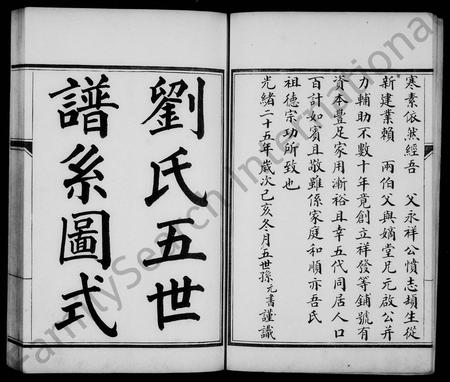 寒素依然經吾 父永祥公憤志頬生從
新建業賴 兩伯父與嫡堂兄元啟公并
力輔助不數十年竟創立祥發等鋪號有
資本豐足家用漸裕且幸五代同居人口
百計如賓且敬雖係家庭和順亦吾氏
祖德宗功所致也
光緒二十五年歲次己亥冬月五世孫元書謹識
劉氏五世
譜系圖式
FamilySearch International